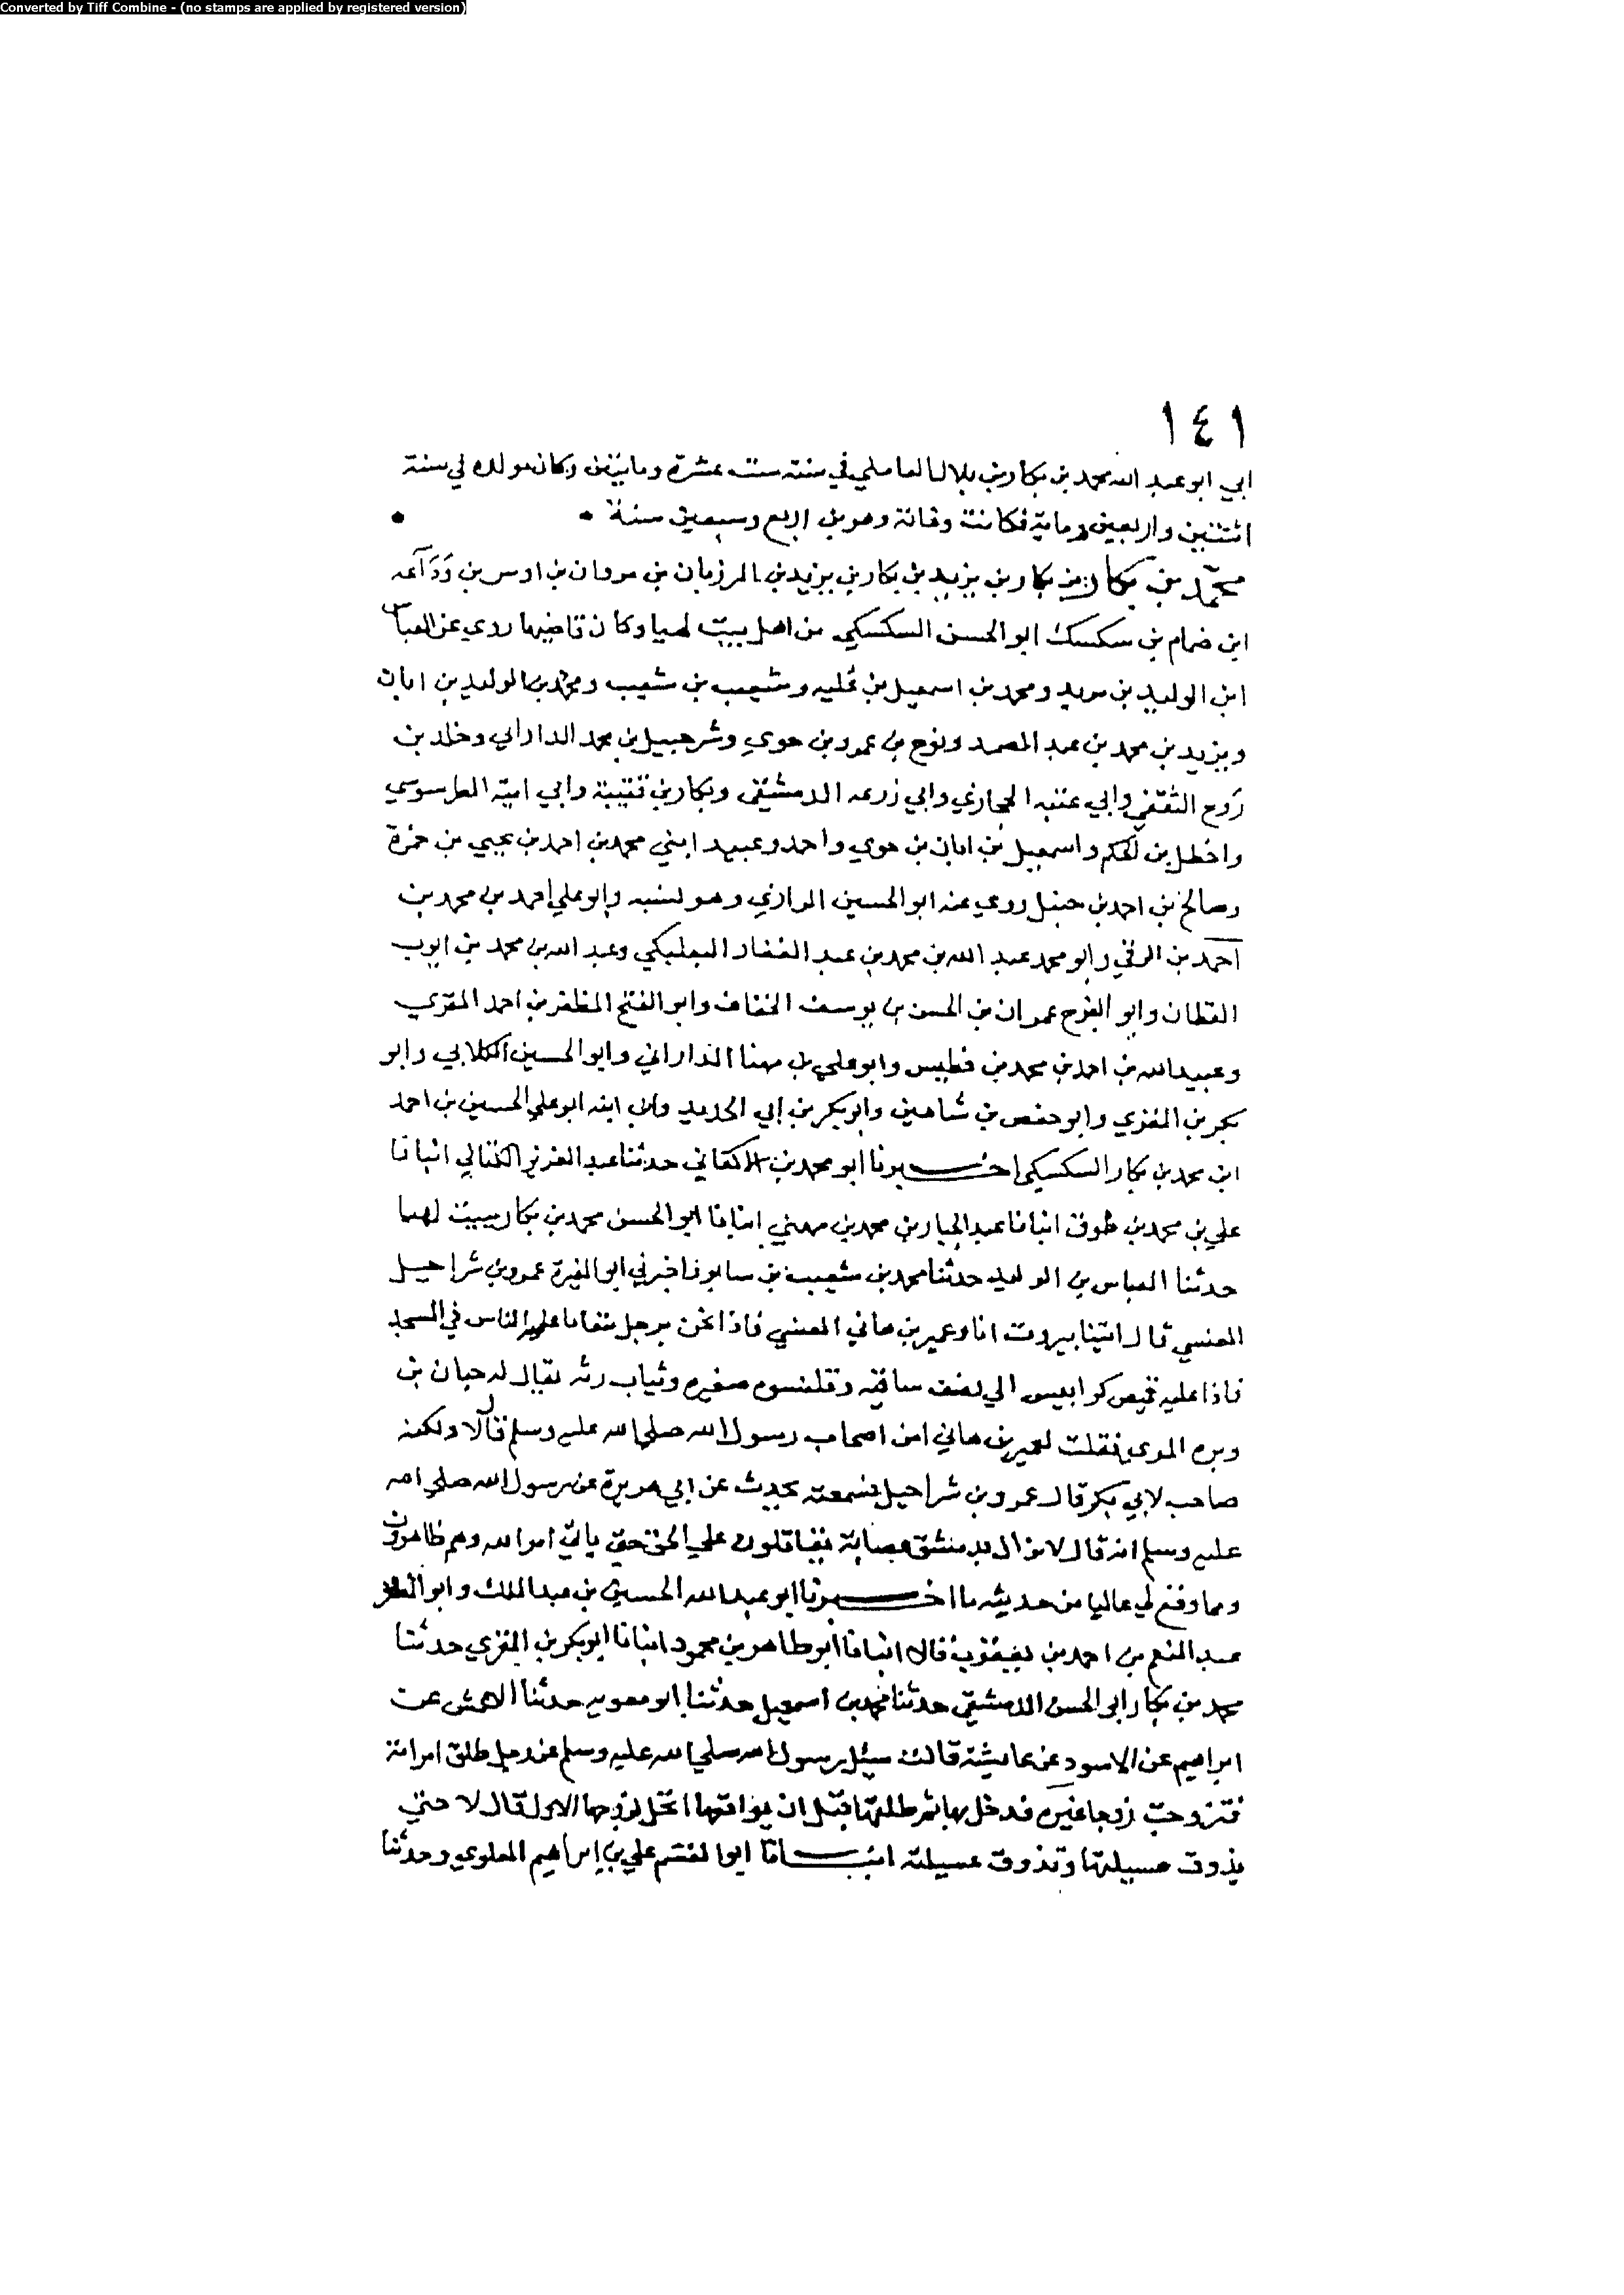 Converted by Tiff Combine - (no stamps are applied by registered version)
١٤١
ابي ابو عبد الله محمد بن بكار بن بلال العاملي في سنة ست عشرة ومايتين وكان مولده في سنة
اثنتين واربعين ومايه فكانت وفاته وهو بن اربع وسبعين سنة
محمد بن بكار بن بكار بن يزيد بن بكار بن يزيد بن المرزبان بن مروان بن اوس بن وداعه
ابن ضمام بن سكسك ابو الحسن السكسكي من اهل بيت لهيا وكان قاضيها روي عن العباس
ابن الوليد بن مزيد ومحمد بن اسمعيل بن عُليه وشعيب بن شعيب ومحمد بن الوليد بن ابان
ويزيد بن محمد بن عبد الصمد ونوح بن عمرو بن حوي وشرحبيل بن محمد الداراني وخالد بن
رَوح الثقفي وابي عتبه الحجازي وابي زرعه الدمشقي وبكار بن قتيبة وابي اميّه الطرسوسي
واخطل بن الحكم واسمعيل بن ابان بن حوي واحمد وعبيد ابني محمد بن احمد بن يحيي بن حمزة
وصالح بن احمد بن حنبل روي عنه ابو الحسين الرازي وهو نسبه وابو علي احمد بن محمد بن
احمد بن الرقي وابو محمد عبد الله بن محمد بن عبد الغفار البعلبكي وعبد الله بن محمد بن ايوب
القطان وابو الفرج عمران بن الحسن بن يوسف الخفاف وابو الفتح المظفر بن احمد المقري
وعبيد الله بن احمد بن محمد بن فطيس وابو علي بن مهنا الداراني وابو الحسين الكلابي وابو
بكر بن المقري وابو حفص بن شاهين وابو بكر بن ابي الحديد وابن ابنه ابو علي الحسين بن احمد
ابن محمد بن بكار السكسكي اخبرنا ابو محمد بن الاكفاني حدثنا عبد العزيز الكتاني انبانا
علي بن محمد بن طوق انبانا عبد الجبار بن محمد بن مهني انبانا ابو الحسن محمد بن بكار ببيت لهيا
حدثنا العباس بن الوليد حدثنا محمد بن شعيب بن سابور اخبرني ابو المغيرة عمرو بن شراحيل
العنسي قال اتينا بيروت انا وعمير بن هاني العنسي فاذا نحن برجل الناس في المسجد
فاذا عليه قميص كرابيس الي نصف ساقيه وقلنسوه صغيره وثياب رثه يقال له حيان بن
وبره المري فقلت لعمير بن هاني امن اصحاب رسول الله صلي الله عليه وسلم قال لا ولكنه
صاحب لابي بكر قال عمرو بن شراحيل فسمعته يحدث عن ابي هريرة عن رسول الله صلي الله
عليه وسلم انه قال لا تزال بدمشق عصابة يقاتلون علي الحق حتي ياتي امر الله وهم ظاهرون
ومما وقع لي عاليا من حديثه ما اخبرنا ابو عبد الله الحسين بن عبد الملك وابو
عبد المنعم بن احمد بن يعقوب قالا انبانا ابو طاهر بن محمود انبانا ابو بكر بن المقري حدثنا
محمد بن بكار ابو الحسن الدمشقي حدثنا محمد بن اسمعيل حدثنا ابو معويه حدثنا الاعمش عن
ابراهيم عن الاسود عن عايشة قالت سيل رسول الله صلي الله عليه وسلم عن رجل طلق امراته
فتزوجت زوجا غيره فدخل بها ثم طلقها قبل ان يواقعها اتحل لزوجها الاول قال لا حتي
يذوق عسيلتها وتذوق عسيلته انبانا ابو القسم علي بن ابراهيم العلوي وحدثنا